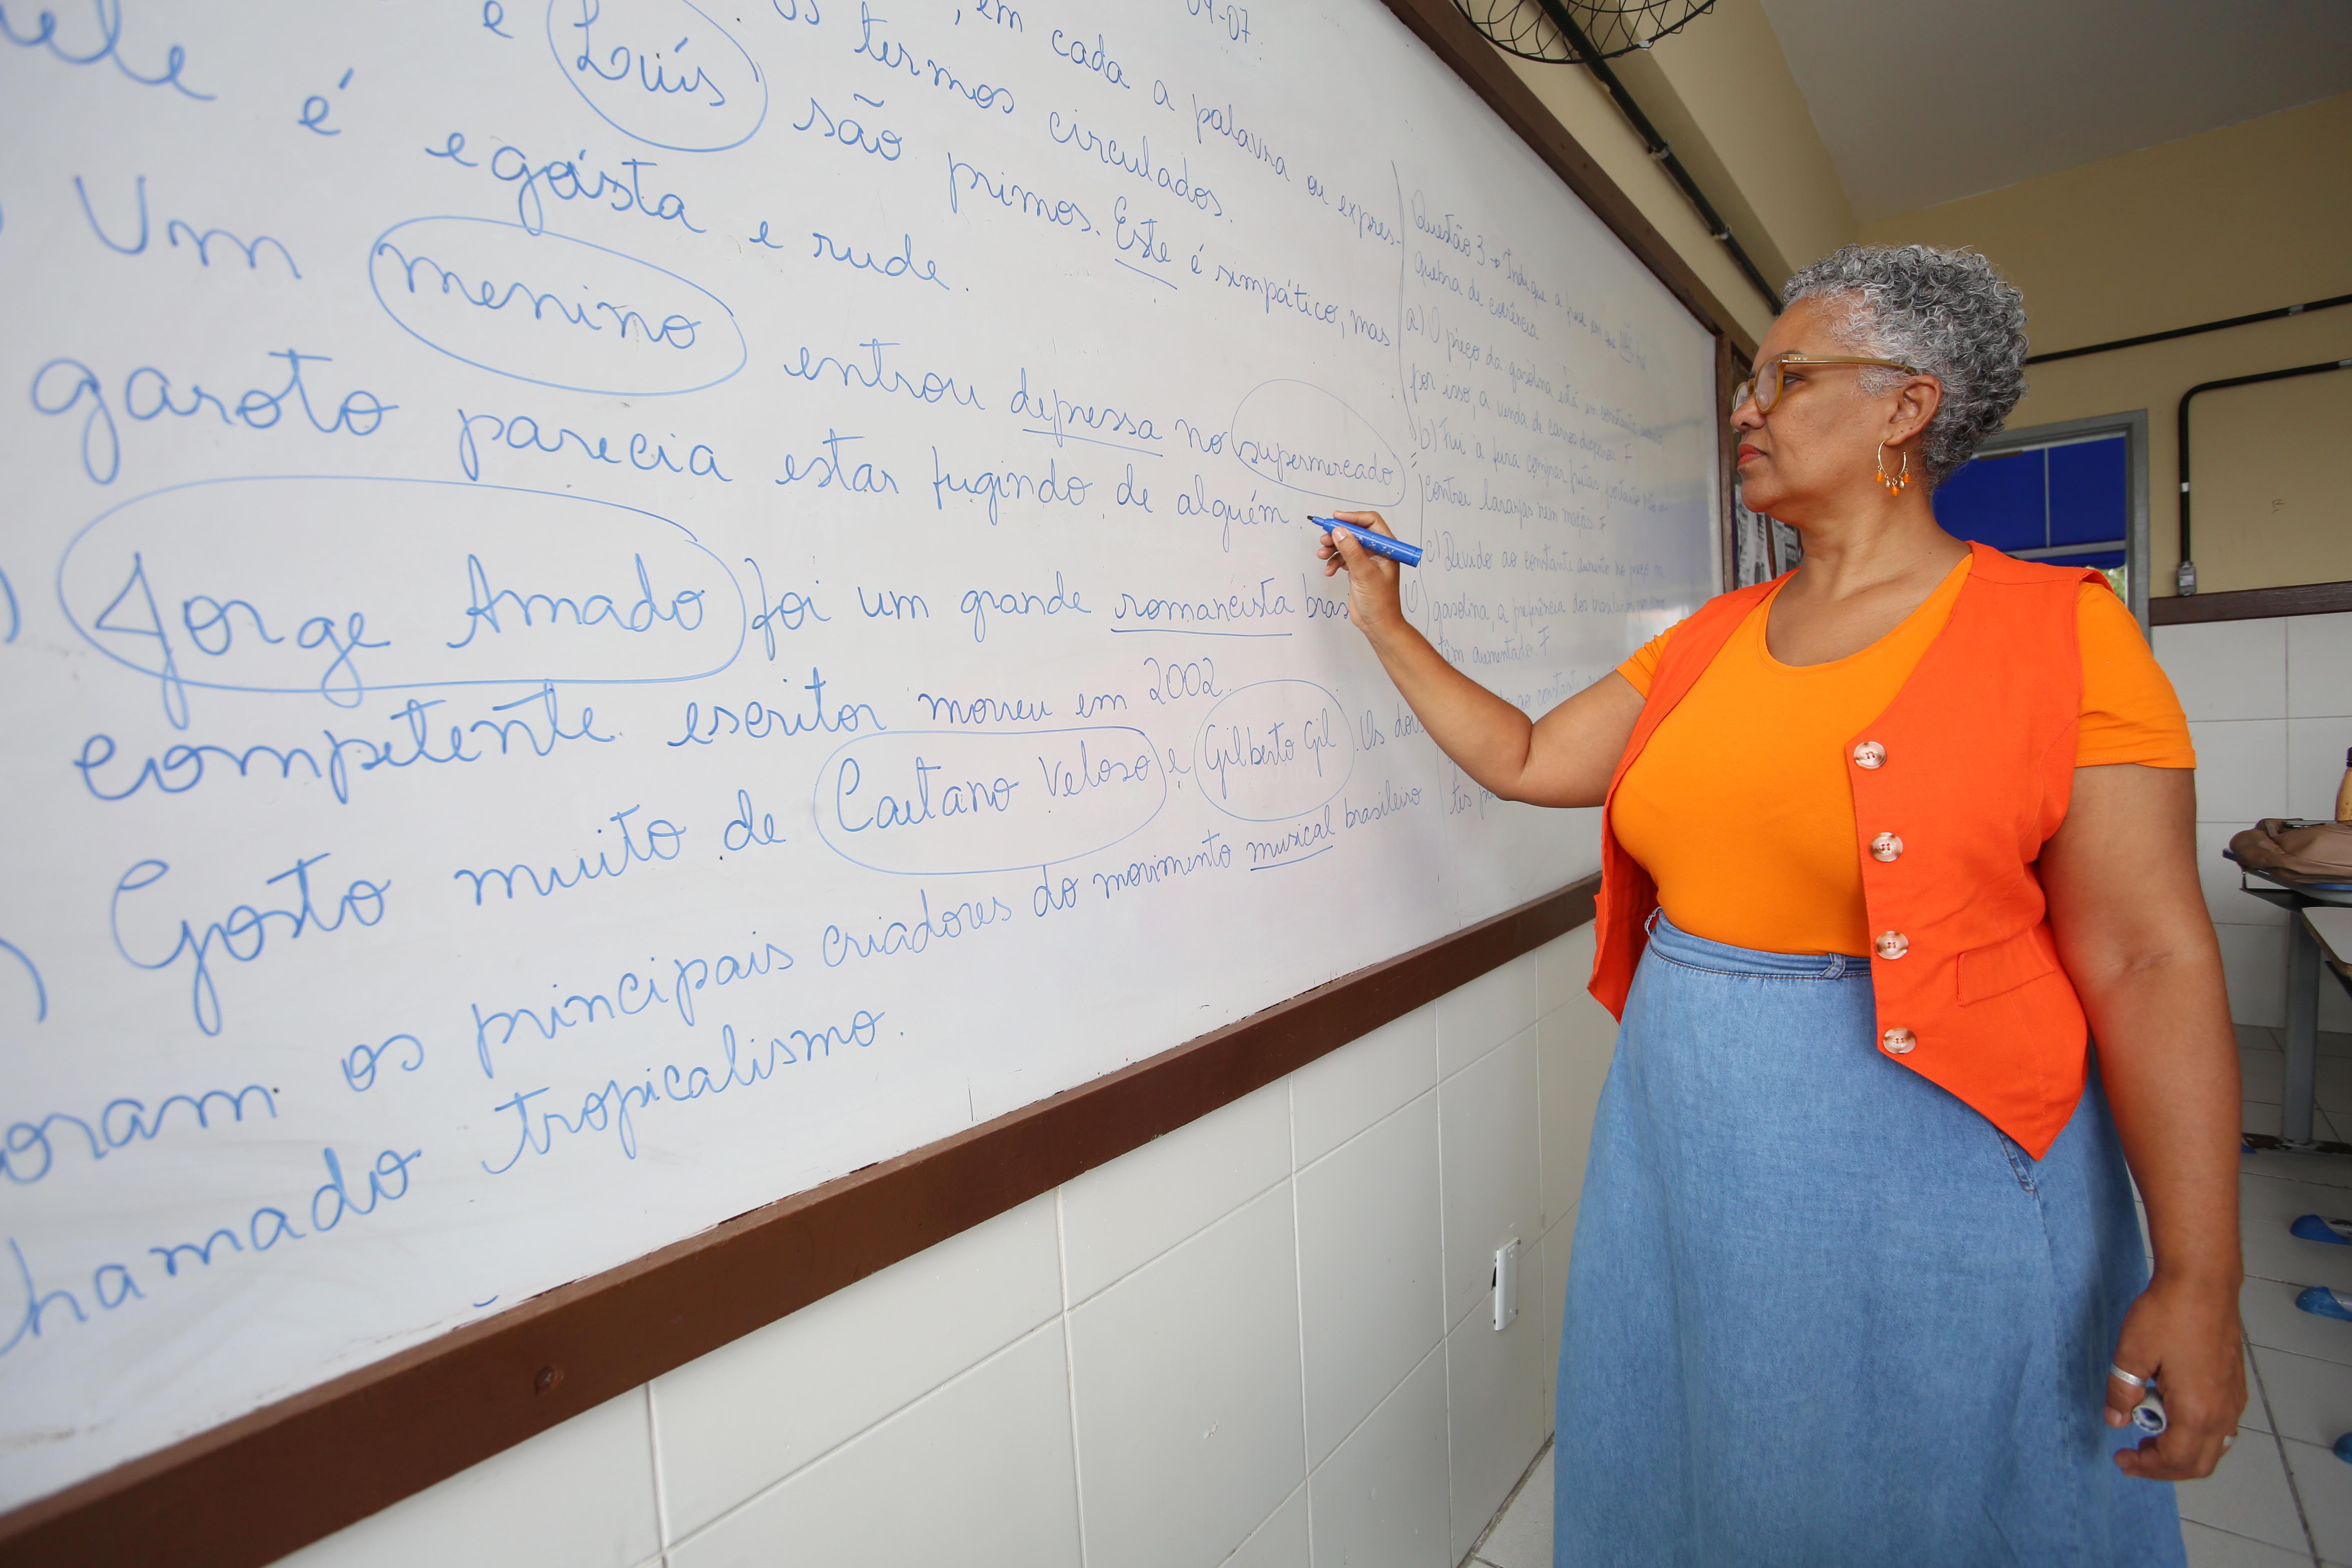 04-07
, em cada a palavra ou expres-
os termos circulados.
e Luís são primos. Este é simpático, mas
é egoísta e rude.
Um menino entrou depressa no supermercado
garoto parecia estar fugindo de alguém.
Jorge Amado foi um grande romancista bras
competente escritor morreu em 2002.
Gosto muito de Caetano Veloso e Gilberto Gil. Os dois
oram os principais criadores do movimento musical brasileiro
hamado tropicalismo.
Questão 3 → Indique a
quebra de coerência
a) O preço da gasolina está em constante
por isso, a venda de carros F
b) Fui à feira comprar frutas, portanto não
contrei laranjas nem maçãs F
c) Devido ao constante aumento no preço da
gasolina, a preferência dos
têm aumentado. F
ao constante